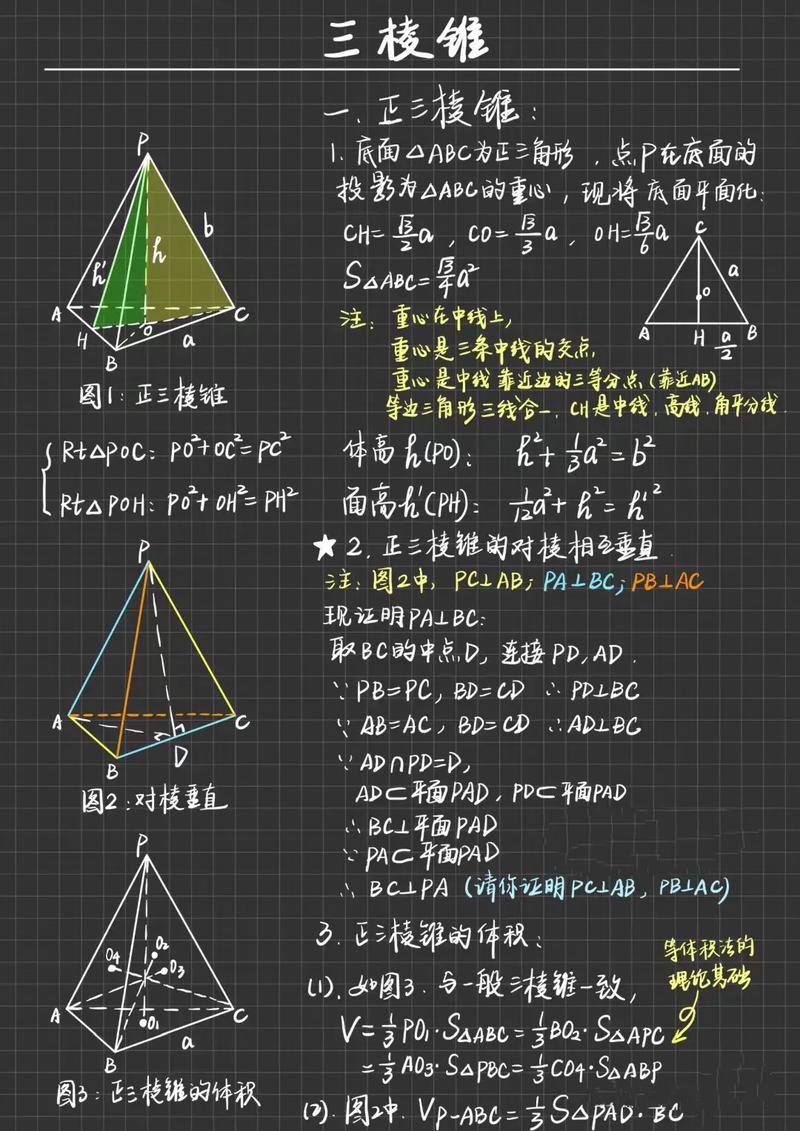 三棱锥
一、正三棱锥：
1. 底面△ABC为正三角形，点P在底面的
投影为△ABC的重心，现将底面平面化：
CH=√3/2a，CO=√3/3a，OH=√3/6a
S△ABC=√3/4a²
注：重心在中线上，
重心是三条中线的交点，
重心是中线靠近边的三等分点（靠近AB）
等边三角形三线合一，CH是中线、高线、角平分线.
C
a
O
A
H
B
a/2
P
b
h
h'
A
H
B
O
a
C
图1：正三棱锥
Rt△POC：PO²+OC²=PC²
Rt△POH：PO²+OH²=PH²
体高h(PO)：h²+1/3a²=b²
面高h'(PH)：1/12a²+h²=h'²
★2. 正三棱锥的对棱相互垂直.
注：图2中，PC⊥AB；PA⊥BC；PB⊥AC
现证明PA⊥BC：
取BC的中点D，连接PD,AD.
∵PB=PC，BD=CD ∴PD⊥BC
∵AB=AC，BD=CD ∴AD⊥BC
∵AD∩PD=D，
AD⊂平面PAD，PD⊂平面PAD
∴BC⊥平面PAD
∵PA⊂平面PAD
∴BC⊥PA（请你证明PC⊥AB，PB⊥AC）
P
A
B
D
C
图2：对棱垂直
3. 正三棱锥的体积：
(1). 如图3. 与一般三棱锥一致，
V=1/3PO₁·S△ABC=1/3BO₂·S△APC
=1/3AO₃·S△PBC=1/3CO₄·S△ABP
等体积法的
理论基础
(2). 图2中. VP-ABC=1/3S△PAD·BC
P
O₄
O₂
O₃
A
O₁
B
a
C
图3：正三棱锥的体积